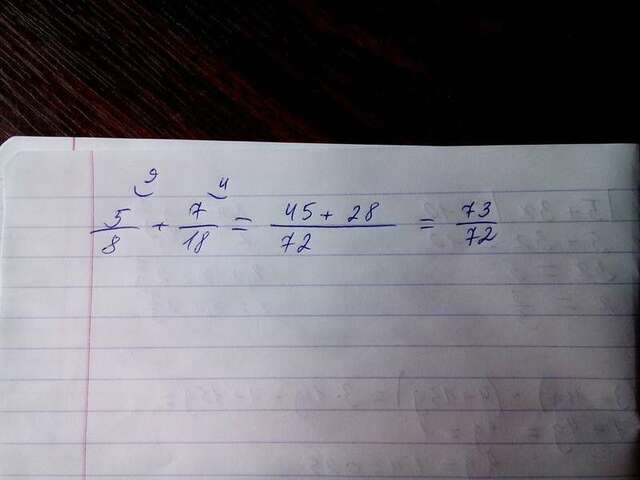 9 4
5/8 + 7/18 = 45 + 28/72 = 73/72